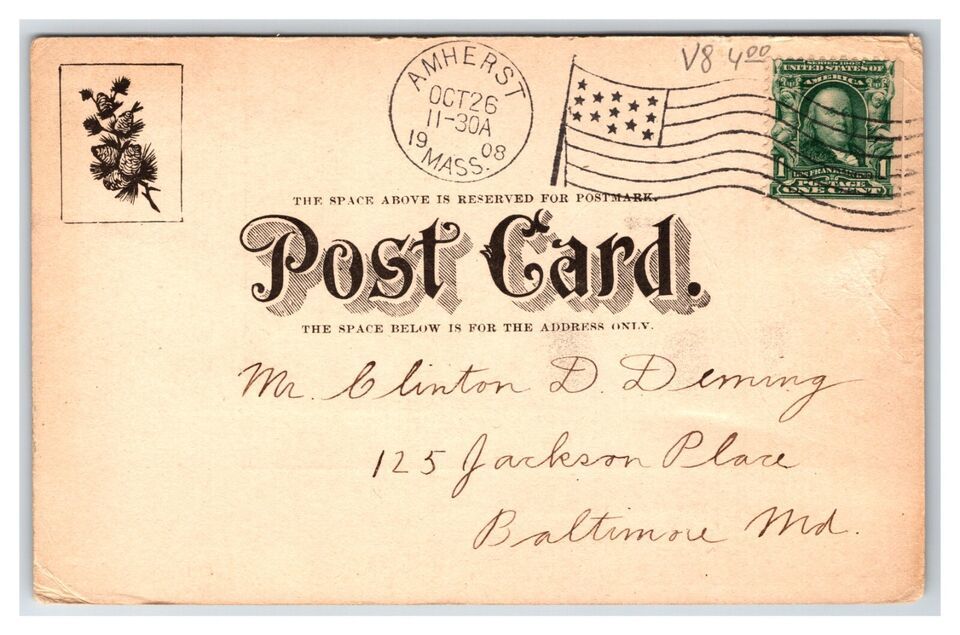 AMHERST
OCT 26
11-30A
1908
MASS.
V8 4.00
SERIES 1902
UNITED STATES OF
AMERICA
1 1
POSTAGE
ONE CENT
THE SPACE ABOVE IS RESERVED FOR POSTMARK.
Post Card.
THE SPACE BELOW IS FOR THE ADDRESS ONLY.
Mr. Clinton D. Deming
125 Jackson Place
Baltimore Md.